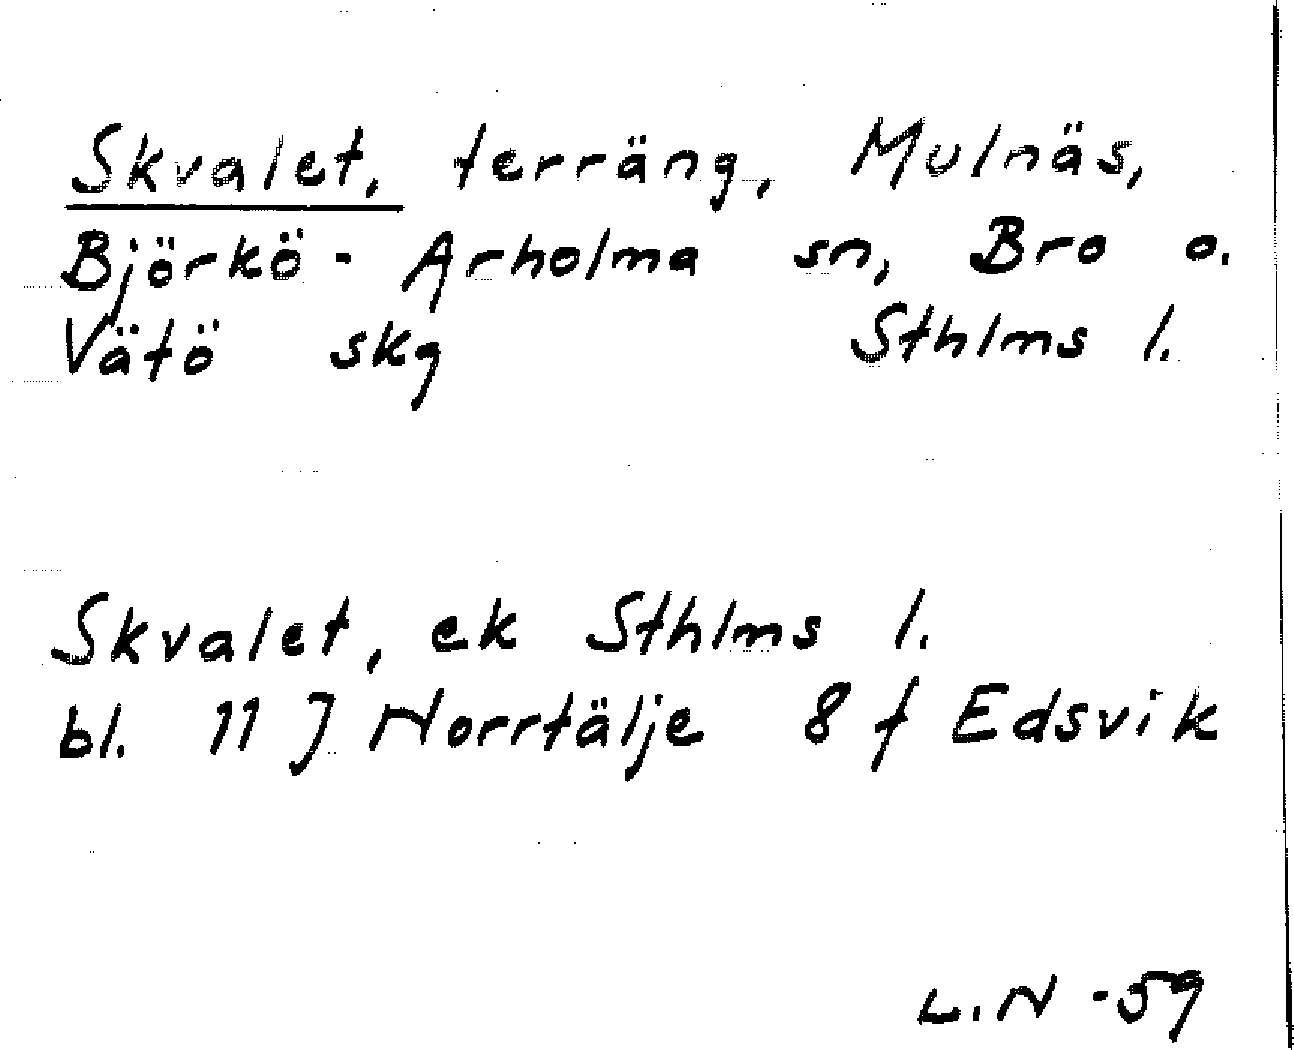 Skvalet, terräng, Mulnäs,
Björkö - Arholma sn, Bro o.
Vätö skg Sthlms l.
Skvalet, ek Sthlms l.
bl. 11 J Norrtälje 8 f Edsvik
L.N -59